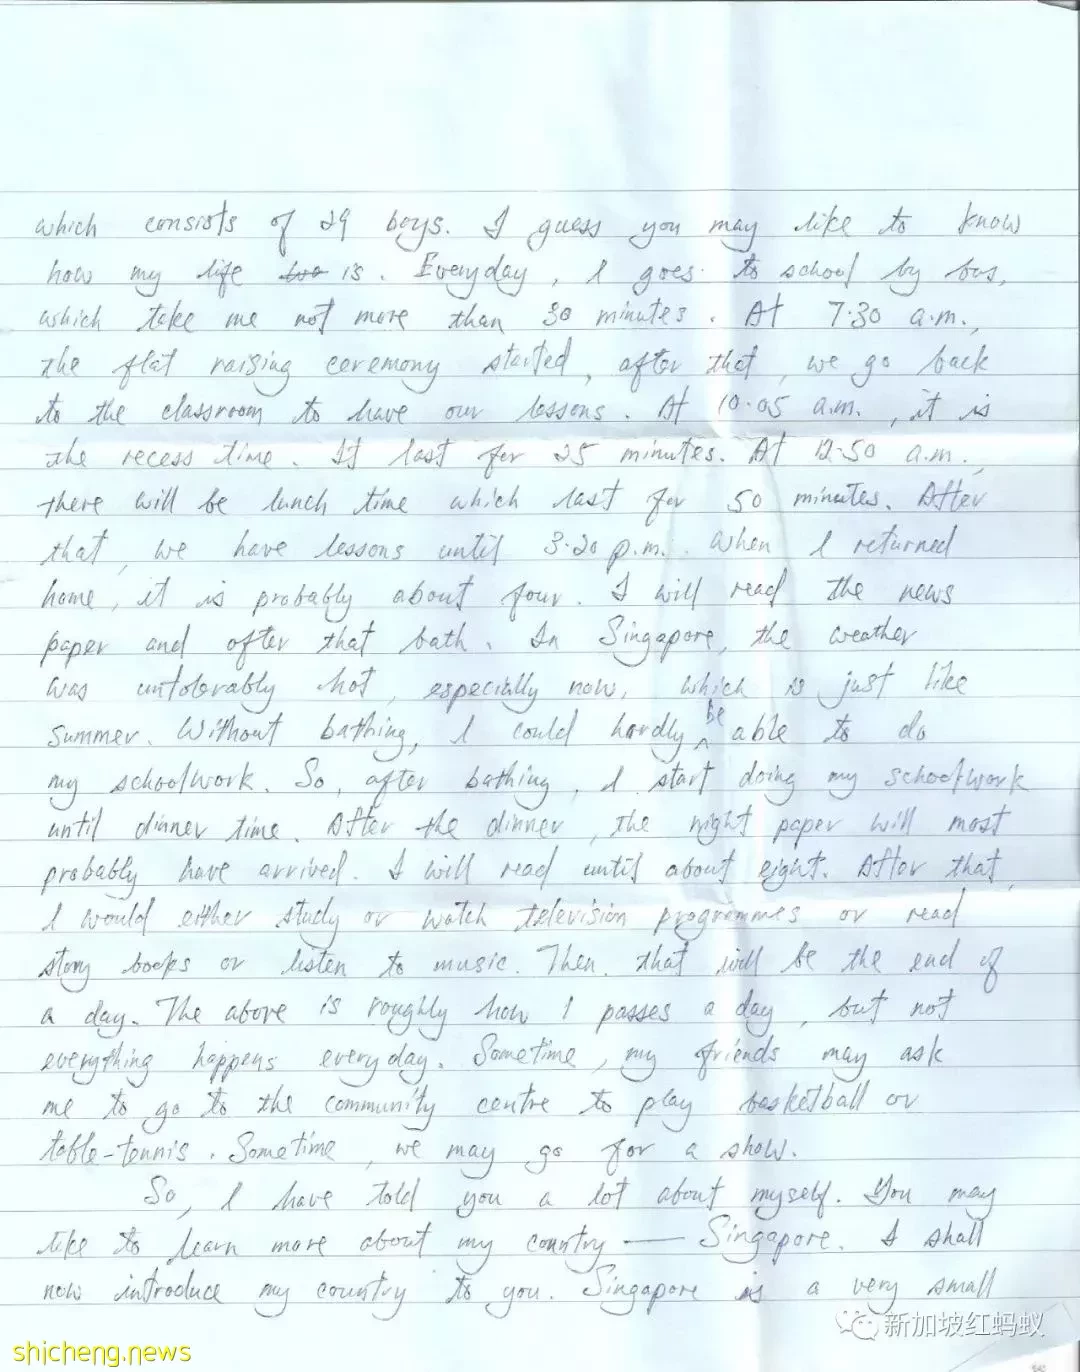 which consists of 29 boys. I guess you may like to know
how my life too is. Everyday, I goes to school by bus,
which take me not more than 30 minutes. At 7.30 a.m.,
the flat raising ceremony started, after that, we go back
to the classroom to have our lessons. At 10.05 a.m., it is
the recess time. It last for 25 minutes. At 12.50 a.m.,
there will be lunch time which last for 50 minutes. After
that, we have lessons until 3.20 p.m.. When I returned
home, it is probably about four. I will read the news
paper and after that bath. In Singapore, the weather
was untolerably hot, especially now, which is just like
summer. Without bathing, I could hardly be able to do
my schoolwork. So, after bathing, I start doing my schoolwork
until dinner time. After the dinner, the night paper will most
probably have arrived. I will read until about eight. After that,
I would either study or watch television programmes or read
story books or listen to music. Then, that will be the end of
a day. The above is roughly how I passes a day, but not
everything happens everyday. Sometime, my friends may ask
me to go to the community centre to play basketball or
table-tennis. Sometime, we may go for a show.
So, I have told you a lot about myself. You may
like to learn more about my country — Singapore. I shall
now introduce my country to you. Singapore is a very small
新加坡红蚂蚁
shicheng.news